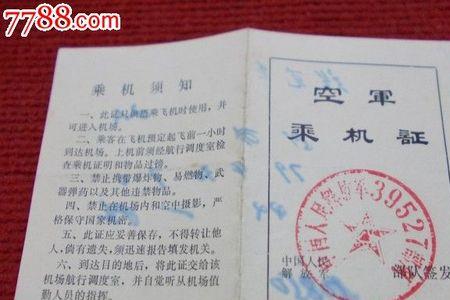 7788.com
乘机须知
一、此证只供搭乘飞机时使用，并
可进入机场。
二、乘客在飞机预定起飞前一小时
到达机场。上机前须经航行调度室检
查乘机证明和物品过镑。
三、禁止携带爆炸物、易燃物、武
器弹药以及其他违禁物品。
四、禁止在机场内和空中摄影，严
格保守国家机密。
五、此证应妥善保存，不得转让他
人，倘有遗失，须迅速报告填发机关。
六、到达目的地后，将此证交给该
机场航行调度室，并自觉听从机场值
勤人员的指挥。
空軍
乘机証
39527
中国人民
解放军
部队签发